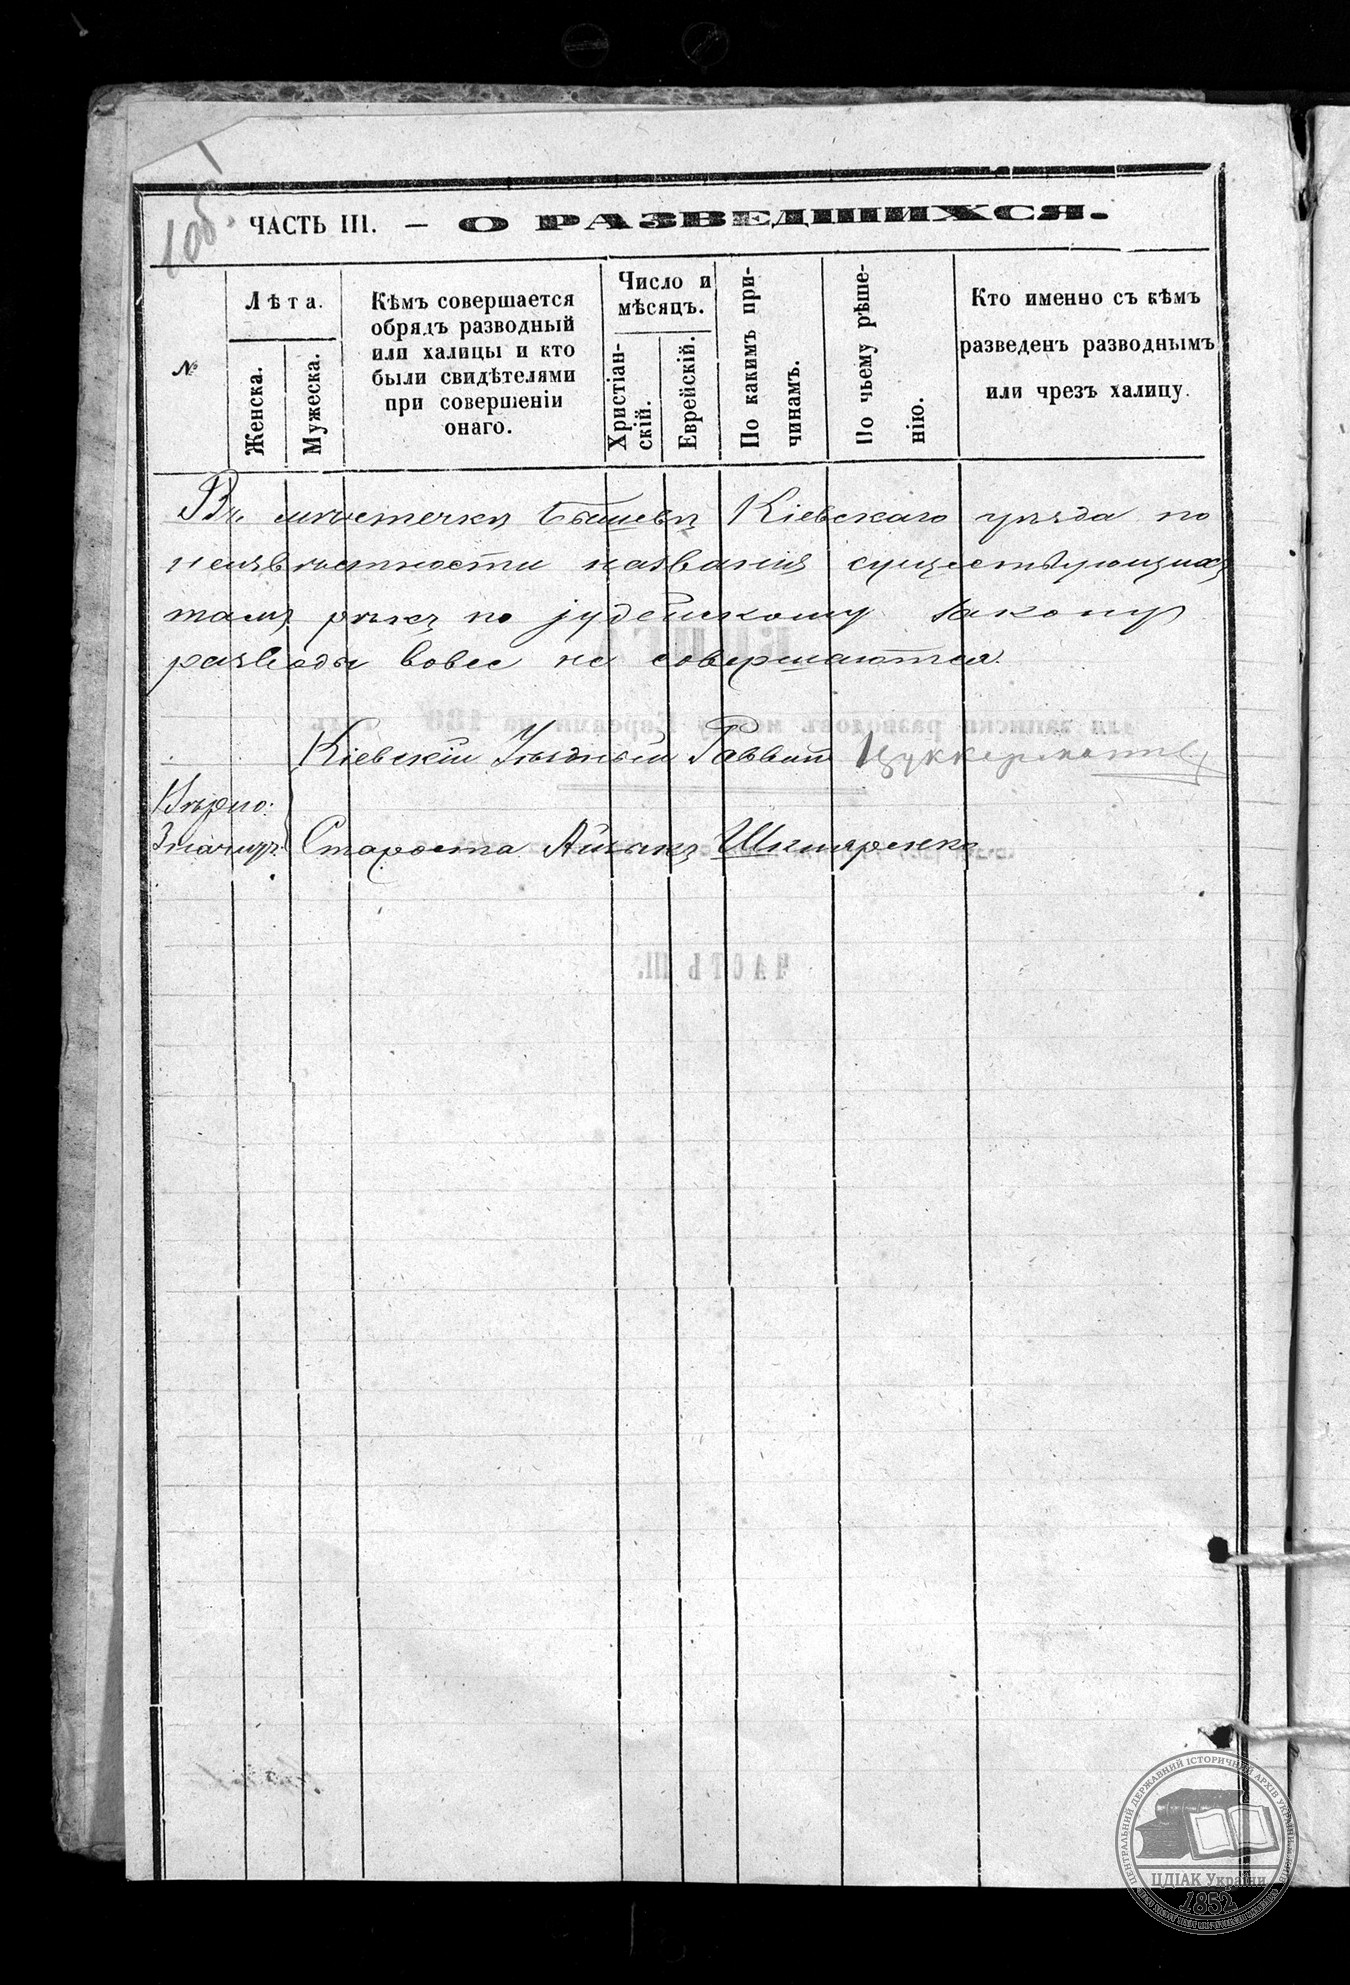 1об.
ЧАСТЬ III. — О РАЗВЕДШИХСЯ.
№
Лѣта.
Женска.
Мужеска.
Кѣмъ совершается
обрядъ разводный
или халицы и кто
были свидѣтелями
при совершеніи
онаго.
Число и
мѣсяцъ.
Христіан-
скій.
Еврейскій.
По какимъ при-
чинамъ.
По чьему рѣше-
нію.
Кто именно съ кѣмъ
разведенъ разводнымъ
или чрезъ халицу.
Въ мѣстечкѣ Бышевѣ Кіевскаго уѣзда по
неизвѣстности названія существующихъ
тамъ рѣкъ по іудейскому закону
разводы вовсе не совершаются.
Кіевскій Уѣздный Раввинъ Цуккерманъ
Вѣрно:
Староста Айзикъ
ЧАСТЬ III.
ЦЕНТРАЛЬНИЙ ДЕРЖАВНИЙ ІСТОРИЧНИЙ АРХІВ УКРАЇНИ
ЦДІАК України
1852